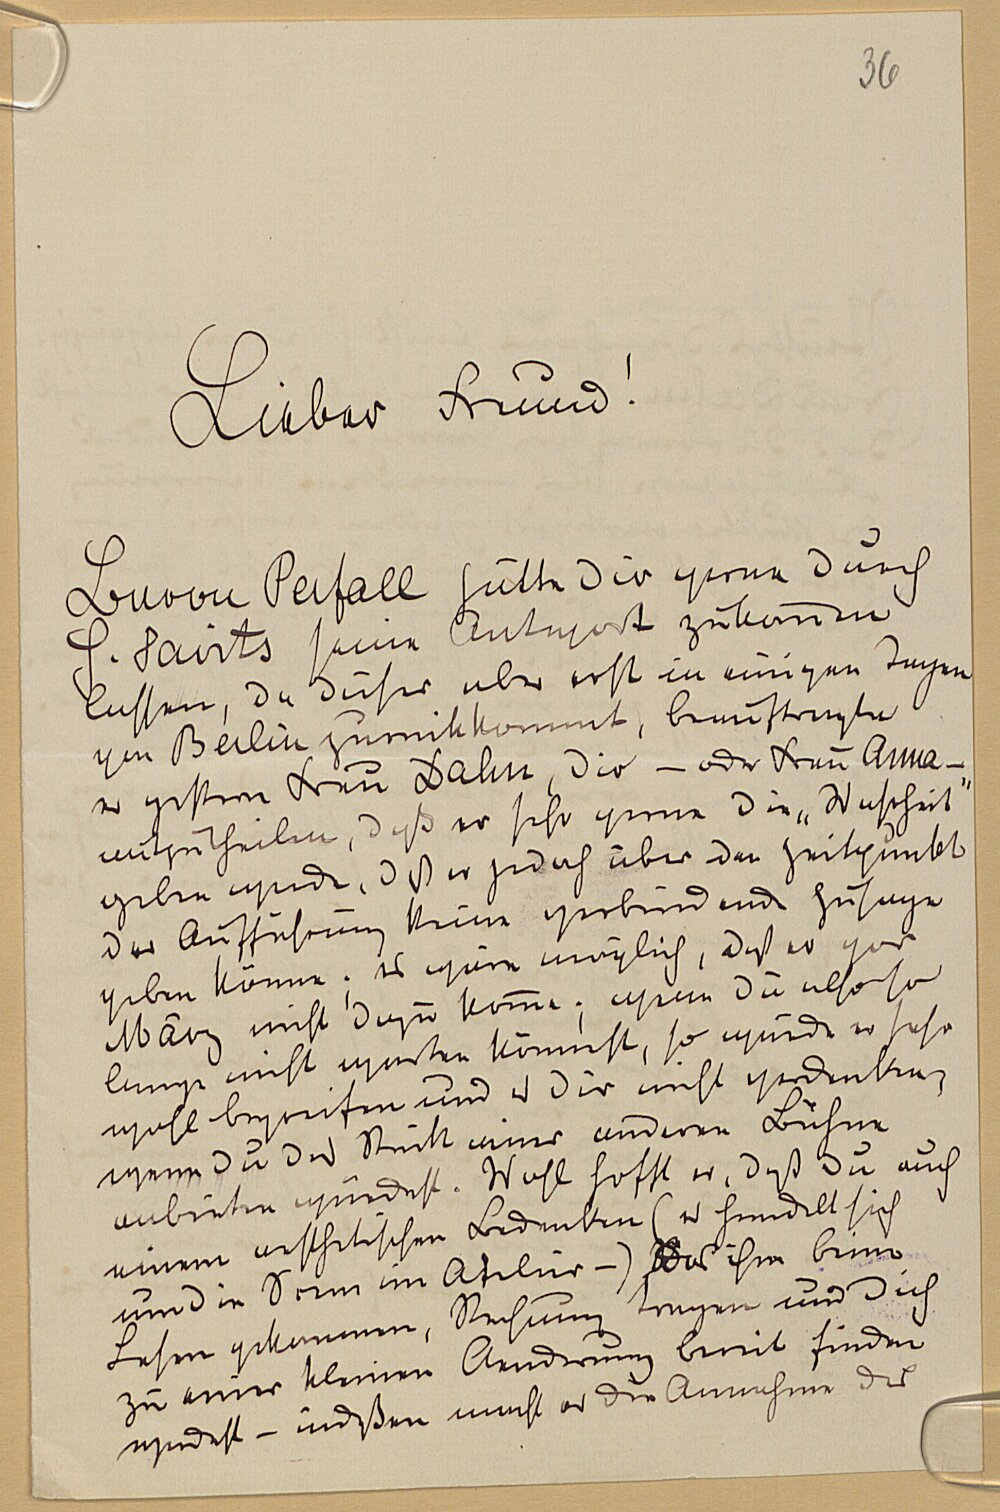 36
Lieber Freund!
Baron Perfall hätte Dir gerne durch
H. Savits seine Antwort zukom̅en
lassen, da dieser aber erst in einigen Tagen
von Berlin zurückkommt, beauftragte
er gestern Frau Dahn, Dir – oder Frau Anna –
mitzutheilen, daß er sehr gerne die „Wahrheit"
geben werde, daß er jedoch über den Zeitpunkt
der Aufführung keine verbindende Zusage
geben könne; es wäre möglich, daß er vor
März nicht dazu kom̅e; wenn Du also so
lange nicht warten könntest, so würde er sehr
wohl begreifen und es Dir nicht verdenken,
wenn Du das Stück einer anderen Bühne
anbieten würdest. Wohl hofft er, daß Du auch
einem aesthetischen Bedenken (es handelt sich
um die Scene im Atelier –) das ihm beim
Lesen gekommen, Rechnung tragen und Dich
zu einer kleinen Aenderung bereit finden
werdest – indeßen macht er die Annahme des